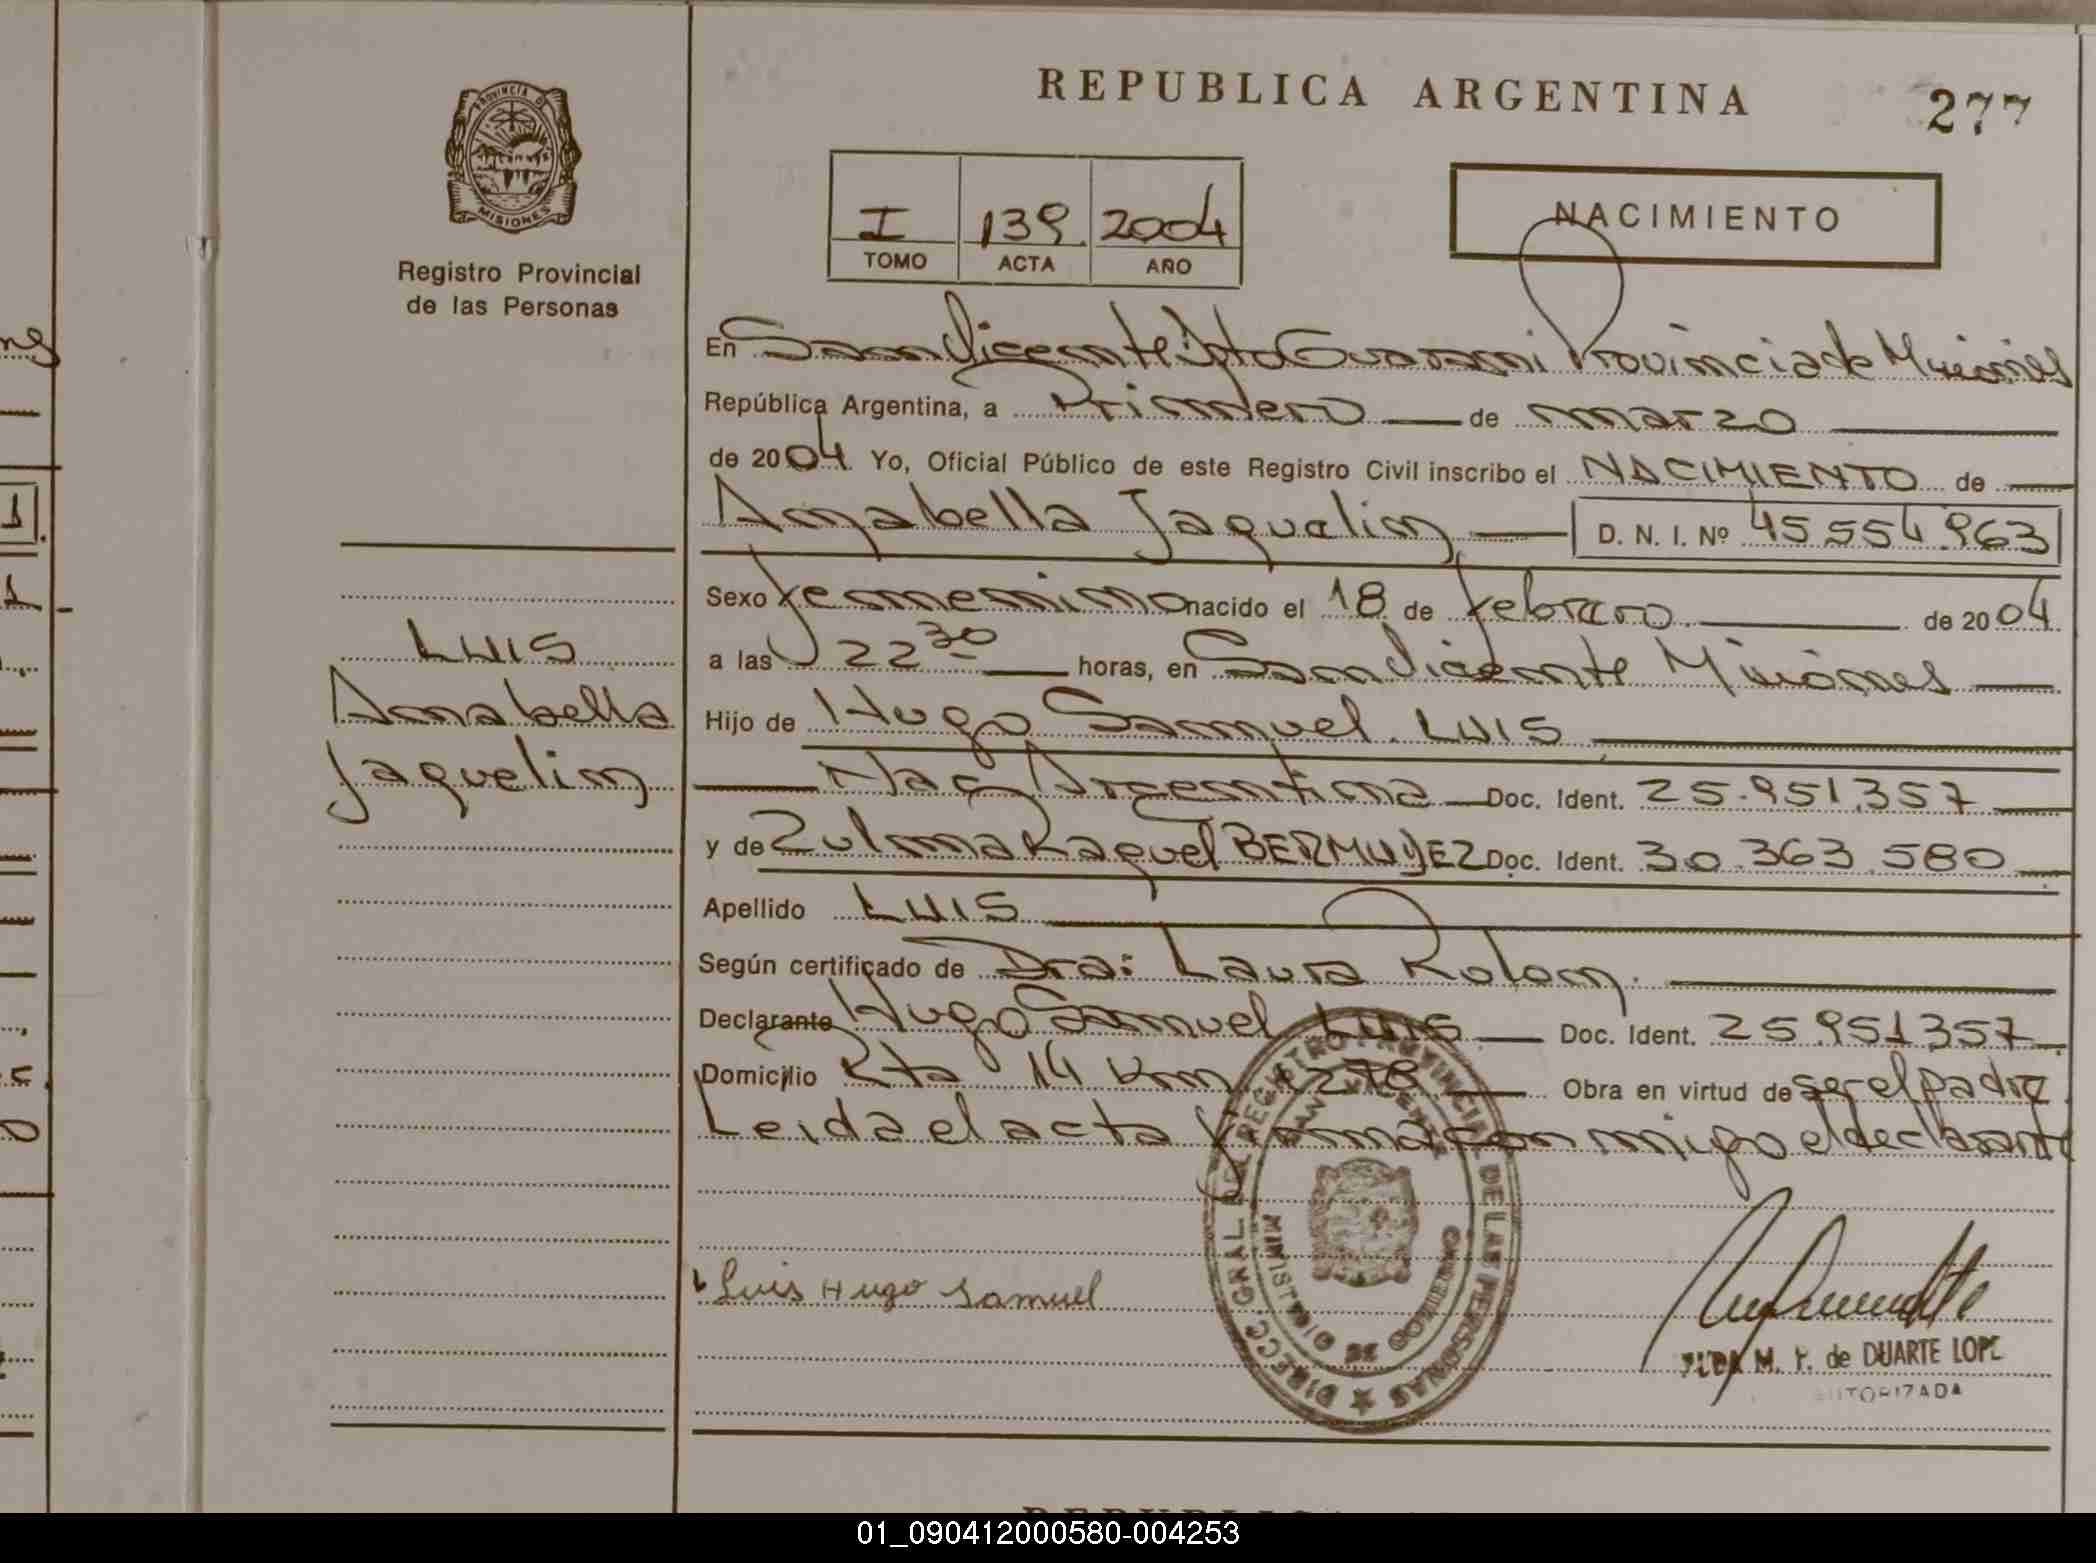 PROVINCIA DE
MISIONES
Registro Provincial
de las Personas
LUIS
Annabella
Jaquelin
REPUBLICA ARGENTINA
277
I 139 2004
TOMO ACTA AÑO
NACIMIENTO
En San Vicente Dpto Guarani Provincia de Misiones
República Argentina, a Primero de marzo
de 2004. Yo, Oficial Público de este Registro Civil inscribo el NACIMIENTO de
Annabella Jaquelin D. N. I. Nº 45.554.963
Sexo femenino nacido el 18 de febrero de 2004
a las 22 30 horas, en San Vicente Misiones
Hijo de Hugo Samuel LUIS
Nac Argentina Doc. Ident. 25.951.357
y de Zulma Raquel BERMUDEZ Doc. Ident. 30.363.580
Apellido LUIS
Según certificado de Dra: Laura Rolon.
Declarante Hugo Samuel LUIS Doc. Ident. 25.951.357
Domicilio Rta 14 Km 1278 Obra en virtud de ser el padre
Leida el acta firma conmigo el declarante
Luis Hugo Samuel
DIRECC. GRAL. DEL REGISTRO PROVINCIAL DE LAS PERSONAS
SAN VICENTE
MINISTERIO DE GOBIERNO
M. F. de DUARTE LOPE
AUTORIZADA
01_090412000580-004253